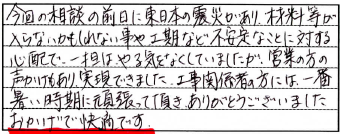 今回の相談の前日に東日本の震災があり、材料等が
入らないかもしれない事や工期など不安定なことに対する
心配で、一担はやる気をなくしていましたが、営業の方の
声かけもあり、実現できました。工事関係者の方には、一番
暑い時期に頑張って頂き、ありがとうございました
おかげで快適です。